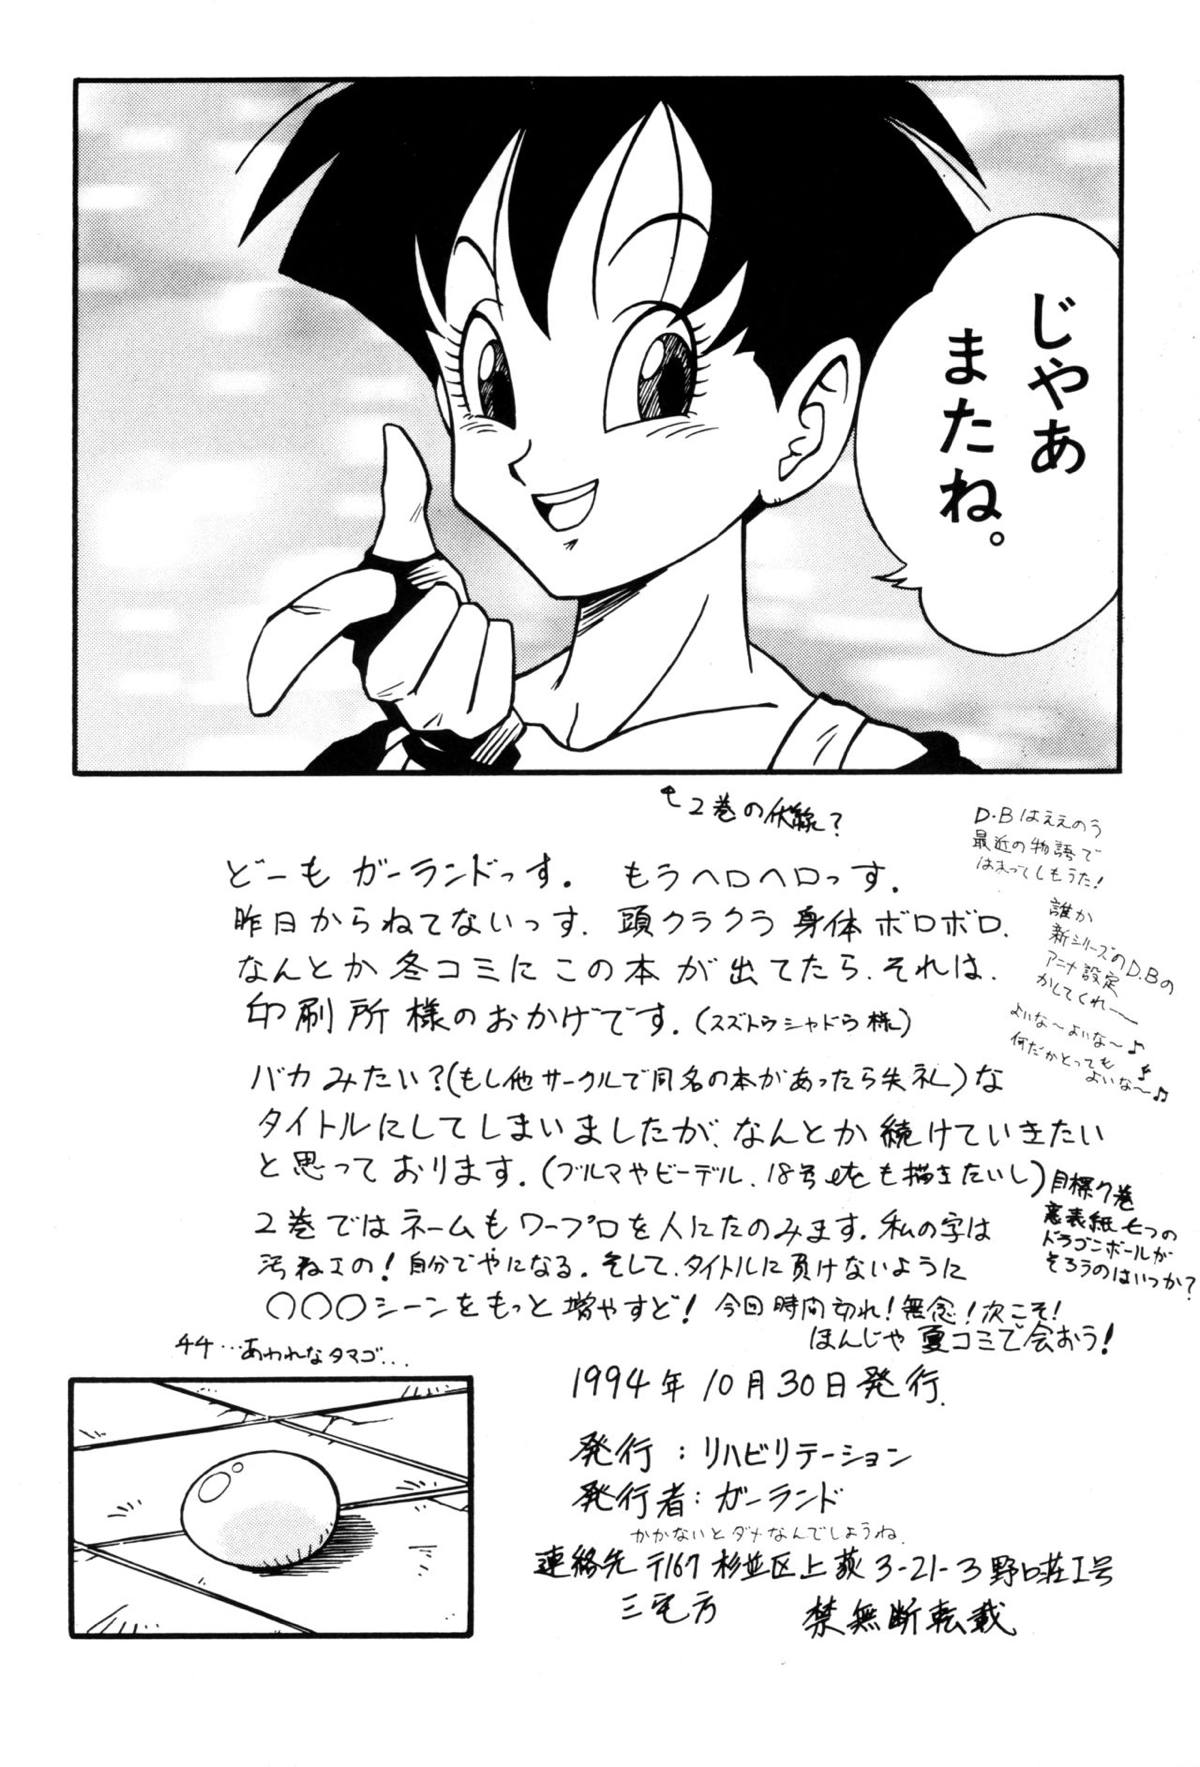 じゃあ
またね。
↑2巻の伏線?
D.Bはええのう
最近の物語で
はまってしもうた!
誰か
新シリーズのD.Bの
アニメ設定
かしてくれ〜〜
よいな〜よいな〜♪
何だかとっても
よいな〜♪♪
どーも ガーランドっす. もうヘロヘロっす.
昨日からねてないっす. 頭クラクラ 身体ボロボロ.
なんとか冬コミにこの本が出てたら.それは.
印刷所様のおかげです.(スズトウシャドウ様)
バカみたい?(もし他サークルで同名の本があったら失礼)な
タイトルにしてしまいましたが、なんとか続けていきたい
と思っております.(ブルマやビーデル.18号etcも描きたいし)
目標7巻
裏表紙七つの
ドラゴンボールが
そろうのはいつか?
2巻ではネームもワープロを人にたのみます.私の字は
汚ねェの!自分でやになる.そして.タイトルに負けないように
〇〇〇シーンをもっと増やすど! 今回時間切れ!無念!次こそ!
ほんじゃ 夏コミで会おう!
44…あわれなタマゴ…
1994年10月30日発行.
発行:リハビリテーション
発行者:ガーランド
かかないとダメなんでしょうね.
連絡先 〒167 杉並区上荻3-21-3野口荘1号
三宅方
禁無断転載